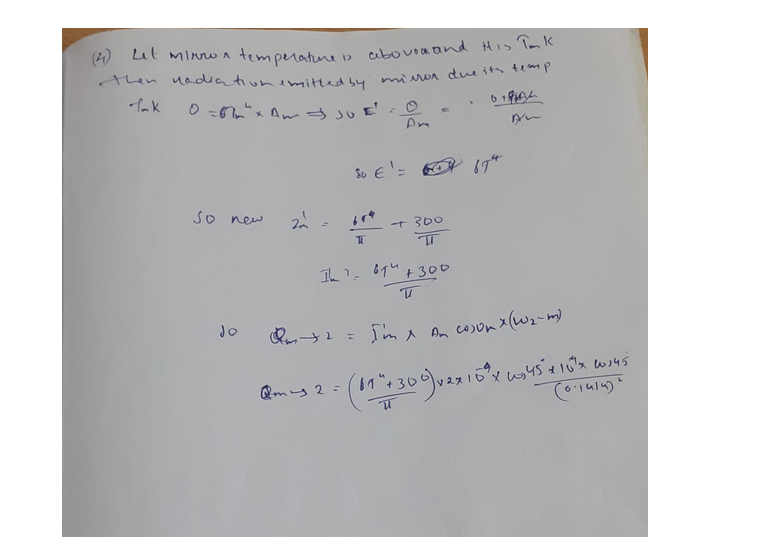 (4) Let mirror temperature is above and it is Tm K
then radiation emitted by mirror due its temp
Tm K θ = σTm⁴ × Am ⇒ so E' = θ/Am =
so E' = σT⁴
so new Im' = σT⁴/π + 300/π
Im' = (σT⁴ + 300)/π
so Qm→2 = I'm × Am cosθm × (ω2-m)
Qm→2 = ((σT⁴ + 300)/π) × 2×10⁻⁴ × cos45° × 10⁻⁴ × cos45/(0.1414)²